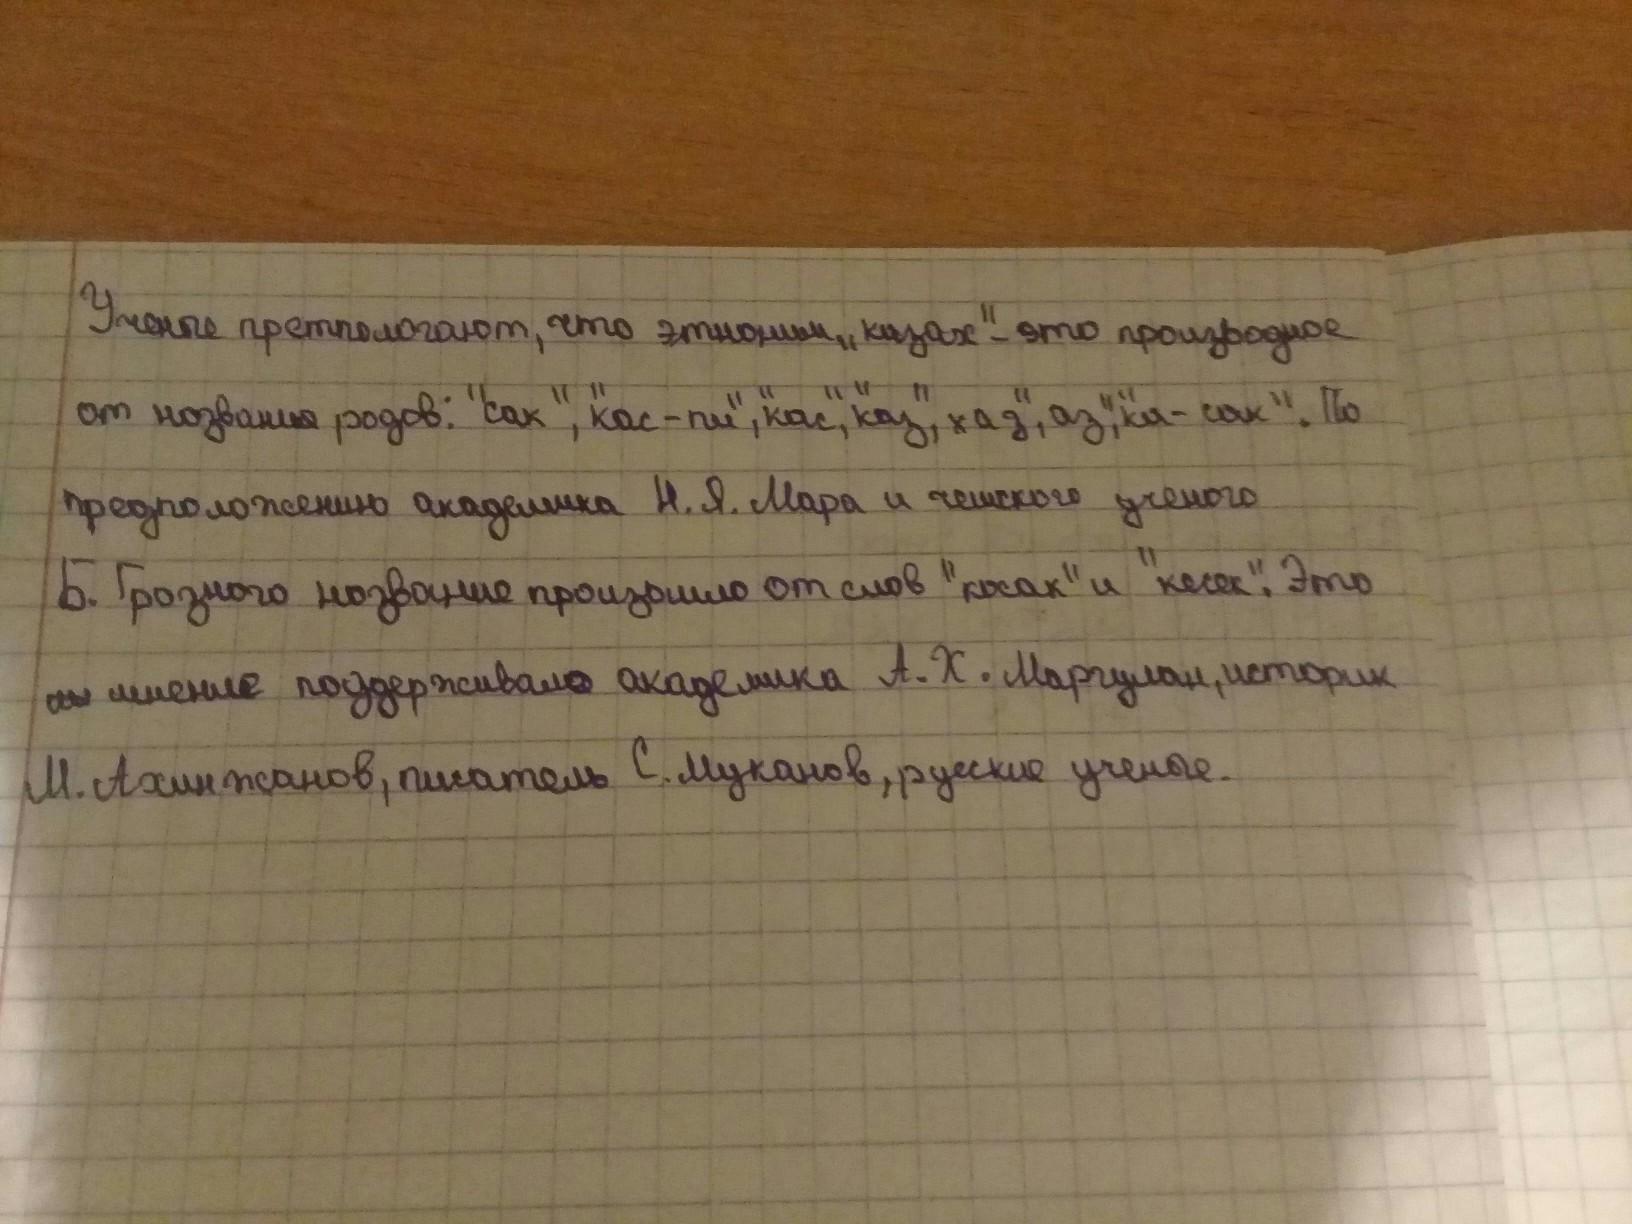 Ученые претпологают, что этноним „казах"- это произродное
от нозвания родов: "сак", "кас-пи", "кас", "каз", хаз", аз", "ка-сак". По
предположению академика Н.Я. Мара и чешского ученого
Б. Грозного нозвание произошло от слов "косак" и "кесек". Это
мнение поддерживало академика А.Х. Маргулан, историк
М. Ахинжанов, писатель С. Муканов, русские ученые.